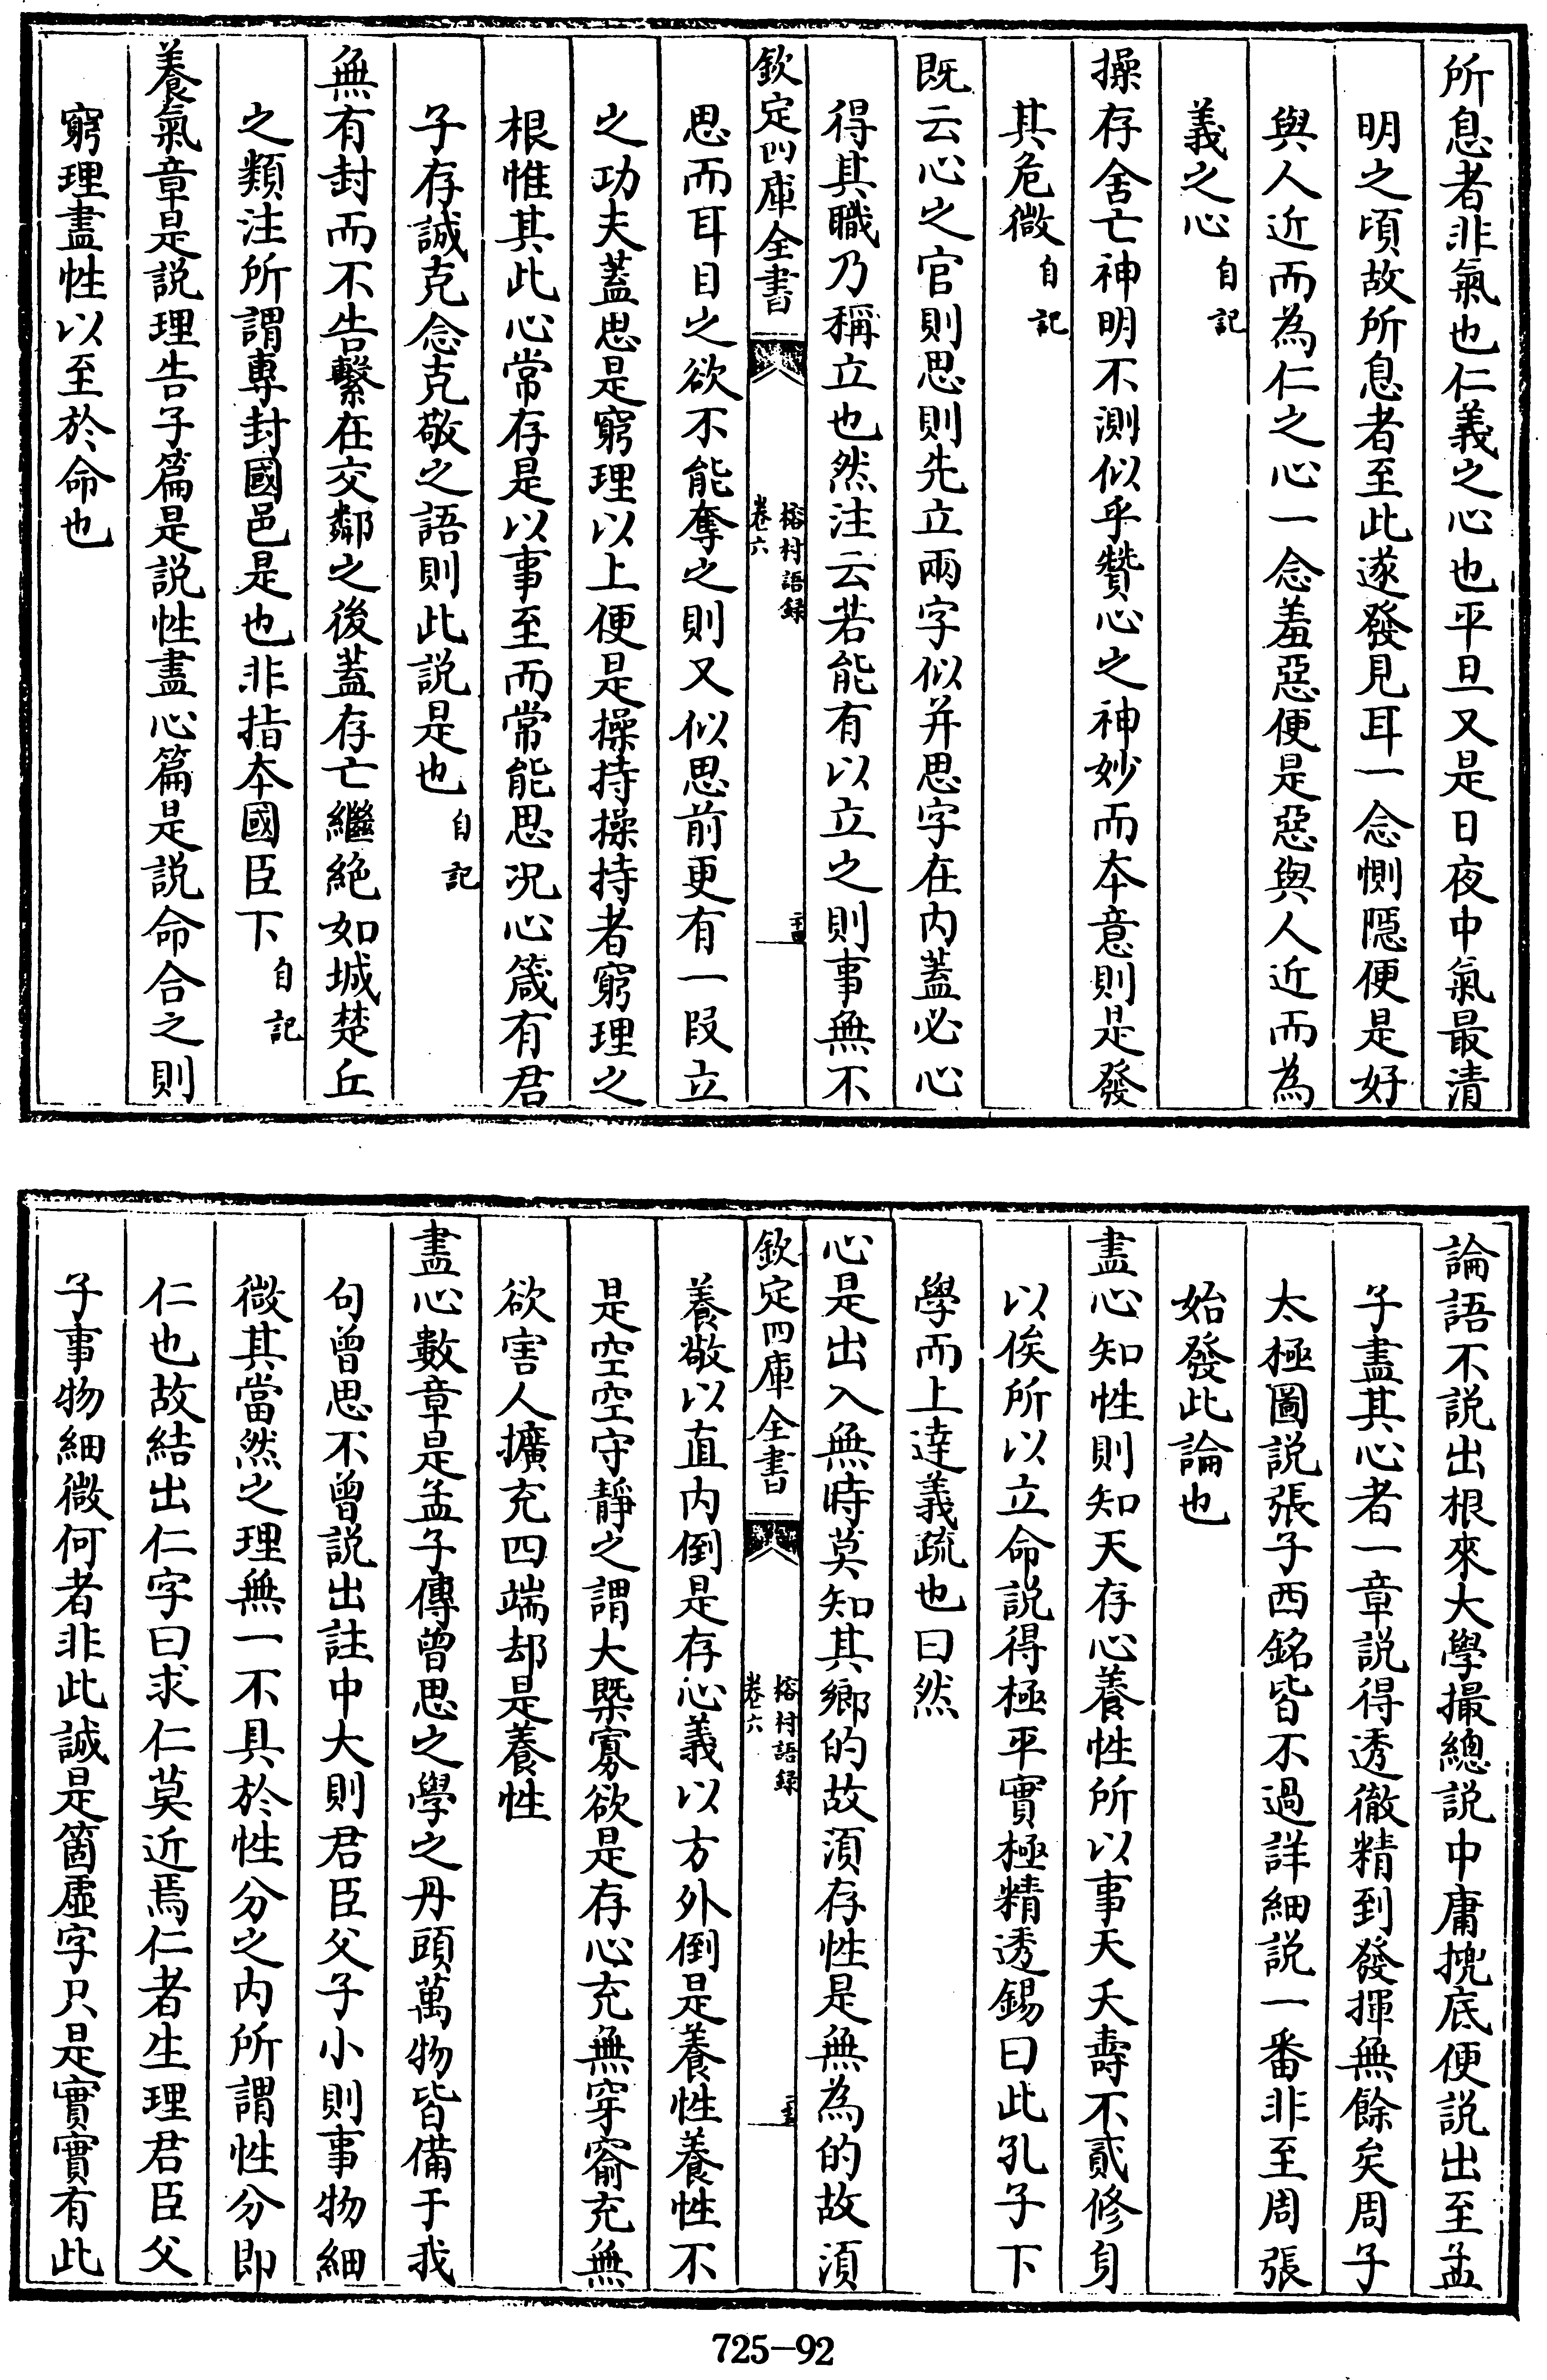 所息者非氣也仁義之心也平旦又是日夜中氣最清
明之頃故所息者至此遂發見耳一念惻隱便是好
與人近而為仁之心一念羞惡便是惡與人近而為
義之心自記
操存舍亡神明不測似乎贊心之神妙而本意則是發
其危微自記
既云心之官則思則先立兩字似并思字在内蓋必心
得其職乃稱立也然注云若能有以立之則事無不
欽定四庫全書
榕村語録
卷六
二十四
思而耳目之欲不能奪之則又似思前更有一段立
之功夫蓋思是窮理以上便是操持操持者窮理之
根惟其此心常存是以事至而常能思况心箴有君
子存誠克念克敬之語則此説是也自記
無有封而不告繫在交鄰之後蓋存亡繼絶如城楚丘
之類注所謂專封國邑是也非指本國臣下自記
養氣章是説理告子篇是説性盡心篇是説命合之則
窮理盡性以至於命也
論語不説出根來大學撮總説中庸挩底便説出至孟
子盡其心者一章説得透徹精到發揮無餘矣周子
太極圖説張子西銘皆不過詳細説一番非至周張
始發此論也
盡心知性則知天存心養性所以事天夭壽不貳修身
以俟所以立命説得極平實極精透錫曰此孔子下
學而上逹義疏也曰然
心是出入無時莫知其鄉的故須存性是無為的故須
欽定四庫全書
榕村語録
卷六
二十五
養敬以直内倒是存心義以方外倒是養性養性不
是空空守靜之謂大槩寡欲是存心充無穿窬充無
欲害人擴充四端却是養性
盡心數章是孟子傳曾思之學之丹頭萬物皆備于我
句曾思不曾説出註中大則君臣父子小則事物細
微其當然之理無一不具於性分之内所謂性分即
仁也故結出仁字曰求仁莫近焉仁者生理君臣父
子事物細微何者非此誠是箇虛字只是實實有此
725-92